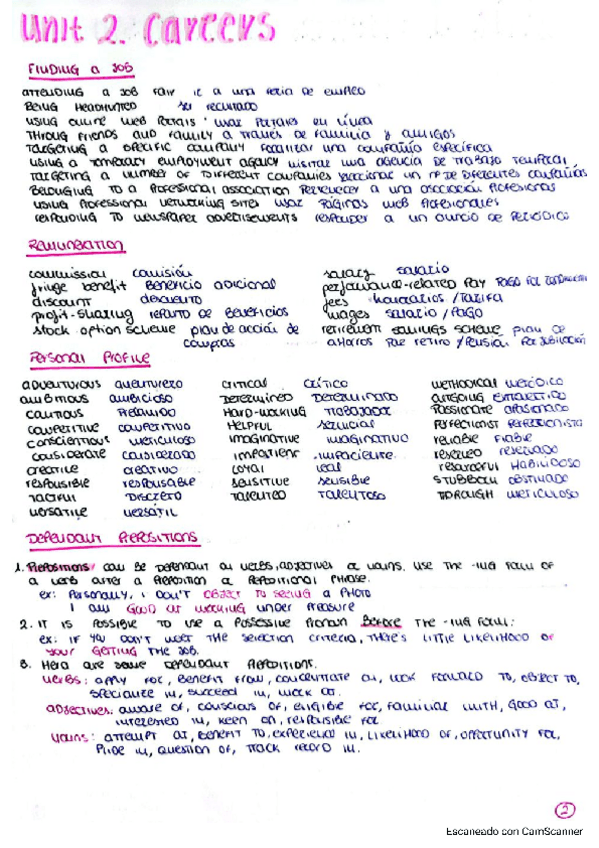 Unit 2. Careers
FINDING A JOB
ATTENDING A JOB FAIR IR A UNA FERIA DE EMPLEO
BEING HEADHUNTED SER RECLUTADO
USING ONLINE WEB PORTALS USAR PORTALES EN LÍNEA
THROUG FRIENDS AND FAMILY A TRAVÉS DE FAMILIA Y AMIGOS
TARGETING A SPECIFIC COMPANY FOCALIZAR UNA COMPAÑIA ESPECÍFICA
USING A TEMPORARY EMPLOYMENT AGENCY VISITAR UNA AGENCIA DE TRABAJO TEMPORAL
TARGETING A NUMBER OF DIFFERENT COMPANIES SELECCIONAR UN Nº DE DIFERENTES COMPAÑIAS
BELONGING TO A PROFESIONAL ASSOCIATION PERTENECER A UNA ASOCIACIÓN PROFESIONAL
USING PROFESSIONAL NETWORKING SITES USAR PÁGINAS WEB PROFESIONALES
RESPONDING TO NEWSPAPER ADVERTISEMENTS RESPONDER A UN ANUNCIO DE PERIÓDICO
REMUNERATION
commission comisión salary salario
fringe benefit Beneficio adicional performance-related pay PAGO POR RENDIMIENTO
discount descuento fees honorarios/TARIFA
profit-sharing reparto de beneficios wages salario/PAGO
stock option scheme plan de acción de retirement savings scheme plan de
compras ahorros por retiro/Pensión por jubilación
PERSONAL PROFILE
ADVENTUROUS AVENTURERO CRITICAL CRÍTICO METHODICAL METÓDICO
AMBITIOUS AMBICIOSO DETERMINED DETERMINADO OUTGOING EXTROVERTIDO
CAUTIOUS PRECAVIDO HARD-WORKING TRABAJADOR PASSIONATE APASIONADO
COMPETITIVE COMPETITIVO HELPFUL SERVICIAL PERFECTIONIST PERFECCIONISTA
CONSCIENTIOUS METICULOSO IMAGINATIVE IMAGINATIVO RELIABLE FIABLE
CONSIDERATE CONSIDERADO IMPATIENT IMPACIENTE RESERVED RESERVADO
CREATIVE CREATIVO LOYAL LEAL RESOURCEFUL HABILIDOSO
RESPONSIBLE RESPONSABLE SENSITIVE SENSIBLE STUBBORN OBSTINADO
TACTFUL DISCRETO TALENTED TALENTOSO THOROUGH METICULOSO
VERSATILE VERSÁTIL
DEPENDANT PREPOSITIONS
1. PREPOSITIONS CAN BE DEPENDANT ON VERBS, ADJECTIVES OR NOUNS. USE THE -ING FORM OF
A VERB AFTER A PREPOSITION OR PREPOSITIONAL PHRASE.
EX: PERSONALLY, I DON'T OBJECT TO SEEING A PHOTO
I AM GOOD AT WORKING UNDER PRESSURE
2. IT IS POSSIBLE TO USE A POSSESSIVE PRONOUN BEFORE THE -ING FORM:
EX: IF YOU DON'T MEET THE SELECTION CRITERIA, THERE'S LITTLE LIKELIHOOD OF
YOUR GETTING THE JOB.
3. HERE ARE SOME DEPENDANT PREPOSITIONS.
VERBS: APPLY FOR, BENEFIT FROM, CONCENTRATE ON, LOOK FORWARD TO, OBJECT TO,
SPECIALIZE IN, SUCCEED IN, WORK AT.
ADJECTIVES: AWARE OF, CONSCIOUS OF, ELIGIBLE FOR, FAMILIAR WITH, GOOD AT,
INTERESTED IN, KEEN ON, RESPONSIBLE FOR
NOUNS: ATTEMPT AT, BENEFIT TO, EXPERIENCE IN, LIKELIHOOD OF, OPPORTUNITY FOR,
PRIDE IN, QUESTION OF, TRACK RECORD IN.
2
Escaneado con CamScanner